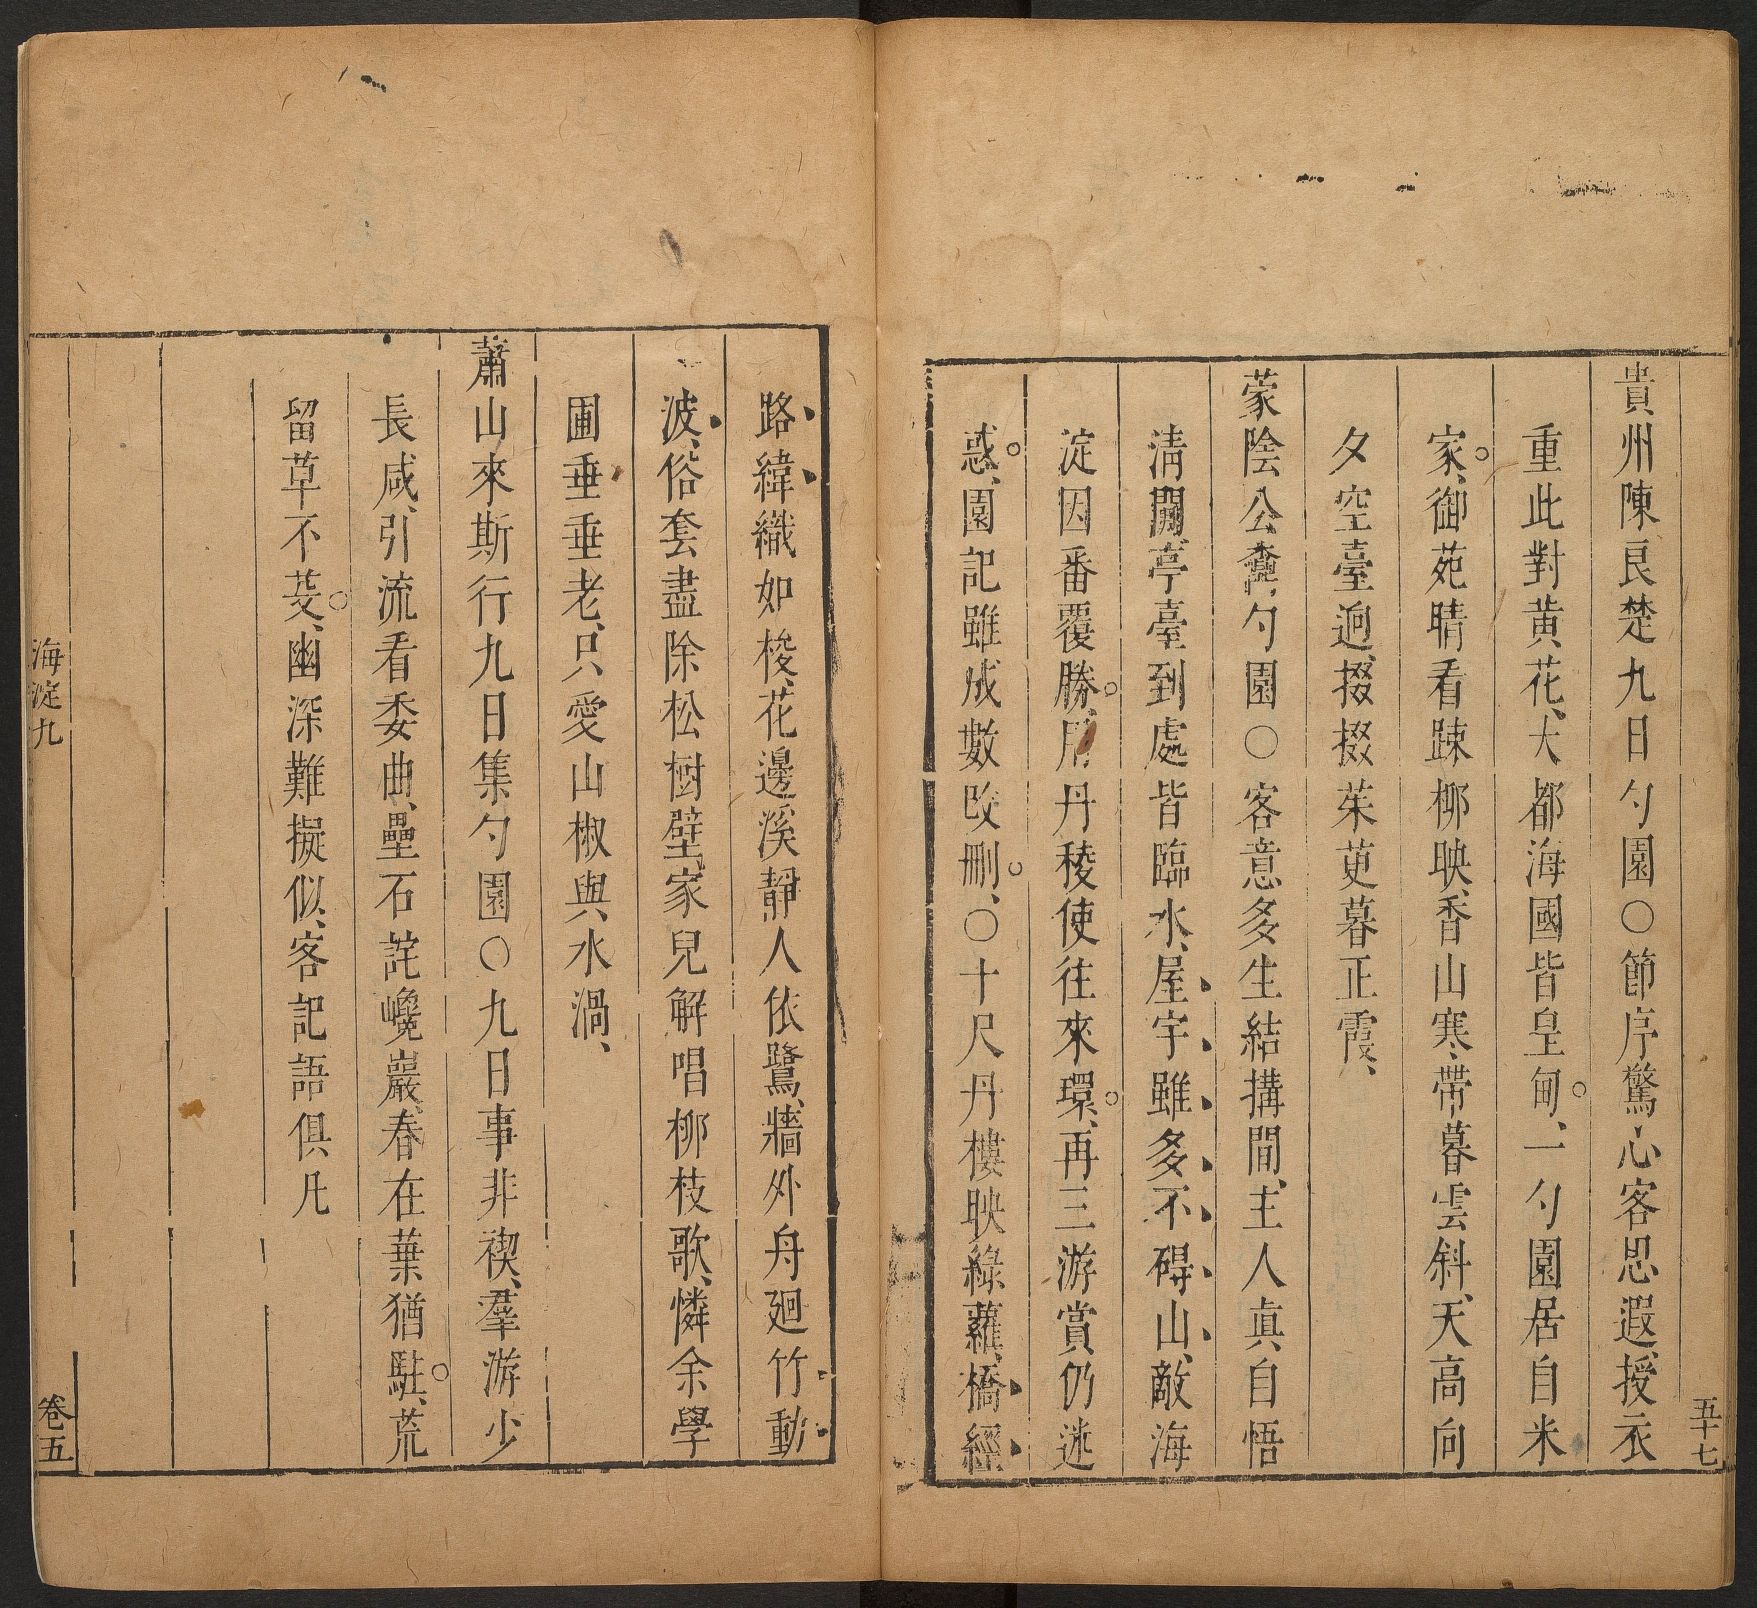 五十七
貴州陳良楚九日勺園○節序驚心客思遐、授衣
重此對黄花、大都海國皆皇甸、一勺園居自米
家、御苑晴看踈柳映、香山寒帶暮雲斜、天高向
夕空臺迥、掇掇茱萸暮正霞、
蒙陰公鼐、勺園○客意多生結搆間、主人眞自悟
清閒、亭臺到處皆臨水、屋宇雖多不碍山、敵海
淀因番覆勝、丹稜使往來環、再三游賞仍迷
惑、園記雖成數改刪、○十尺丹樓映綠蘿、橋經
路、緯織如梭、花邊溪靜人依鷺、牆外舟廻竹動
波、俗套盡除松樹壁、家兒解唱柳枝歌、憐余學
圃垂垂老、只愛山椒與水渦、
蕭山來斯行九日集勺園○九日事非禊、羣游少
長咸、引流看委曲、壘石詫巉巖、春在葉猶駐、荒
留草不芟、幽深難擬似、客記語俱凡
海淀九
卷五